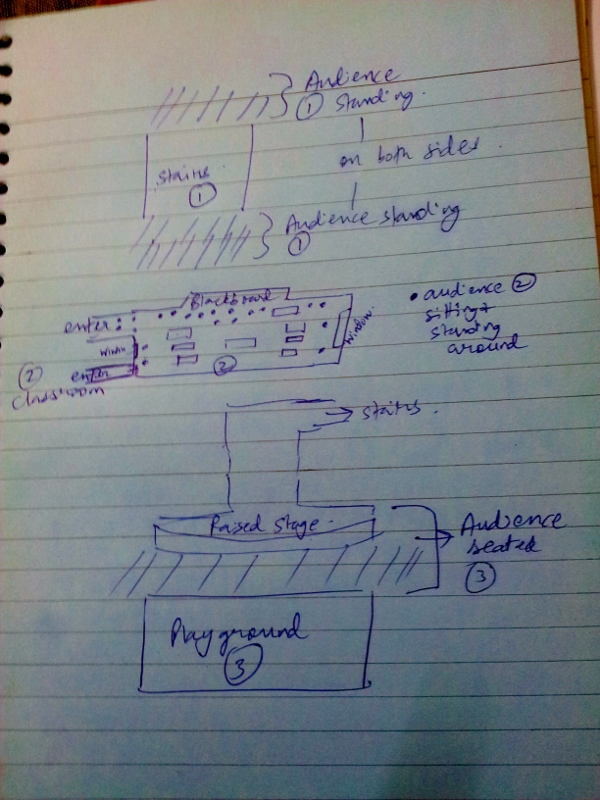 Audience
① standing.
on both sides.
Stairs.
①
Audience standing
①
Blackboard
enter
window
window.
enter
②
② classroom
• audience ②
sitting +
standing
around
stairs.
Raised Stage.
Audience
seated
③
Playground
③